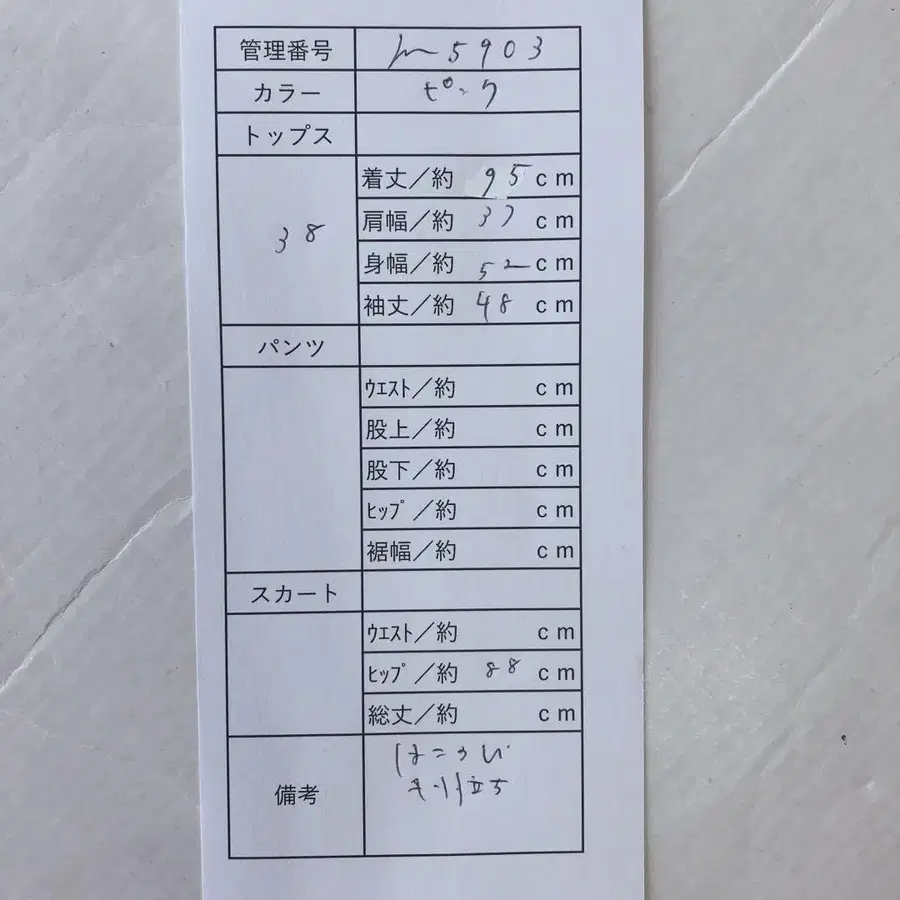 管理番号 m 5903
カラー ピンク
トップス
38
着丈／約 95 cm
肩幅／約 37 cm
身幅／約 52 cm
袖丈／約 48 cm
パンツ
ｳｴｽﾄ／約 cm
股上／約 cm
股下／約 cm
ﾋｯﾌﾟ／約 cm
裾幅／約 cm
スカート
ｳｴｽﾄ／約 cm
ﾋｯﾌﾟ／約 88 cm
総丈／約 cm
備考
立ち